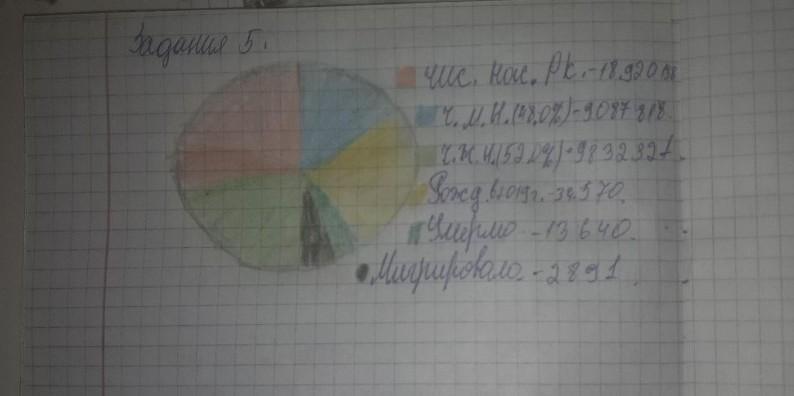 Задания 5.
Чис. нас. РК. - 18.920
Ч.М.Н. (48.0%) - 9087818.
Ч.Ж.Н. (52.0%) - 9832327.
Рожд. в 2019г. - 34.570.
Умерло - 13 640.
Мигрировало - 2891.